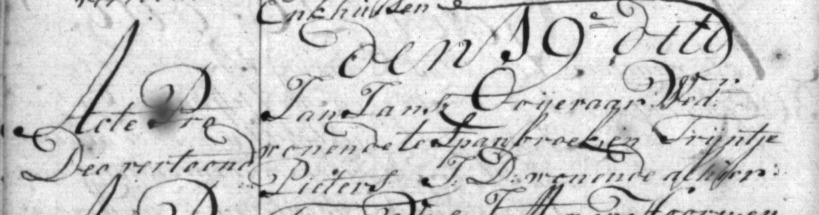 Enkhuisen
den 19e dito
Acte Pro
Deo vertoond
Jan Jansz Ooijevaar Wedr.
wonende te Spanbroek en Trijntje
Pieters J. D. wonende alhier.